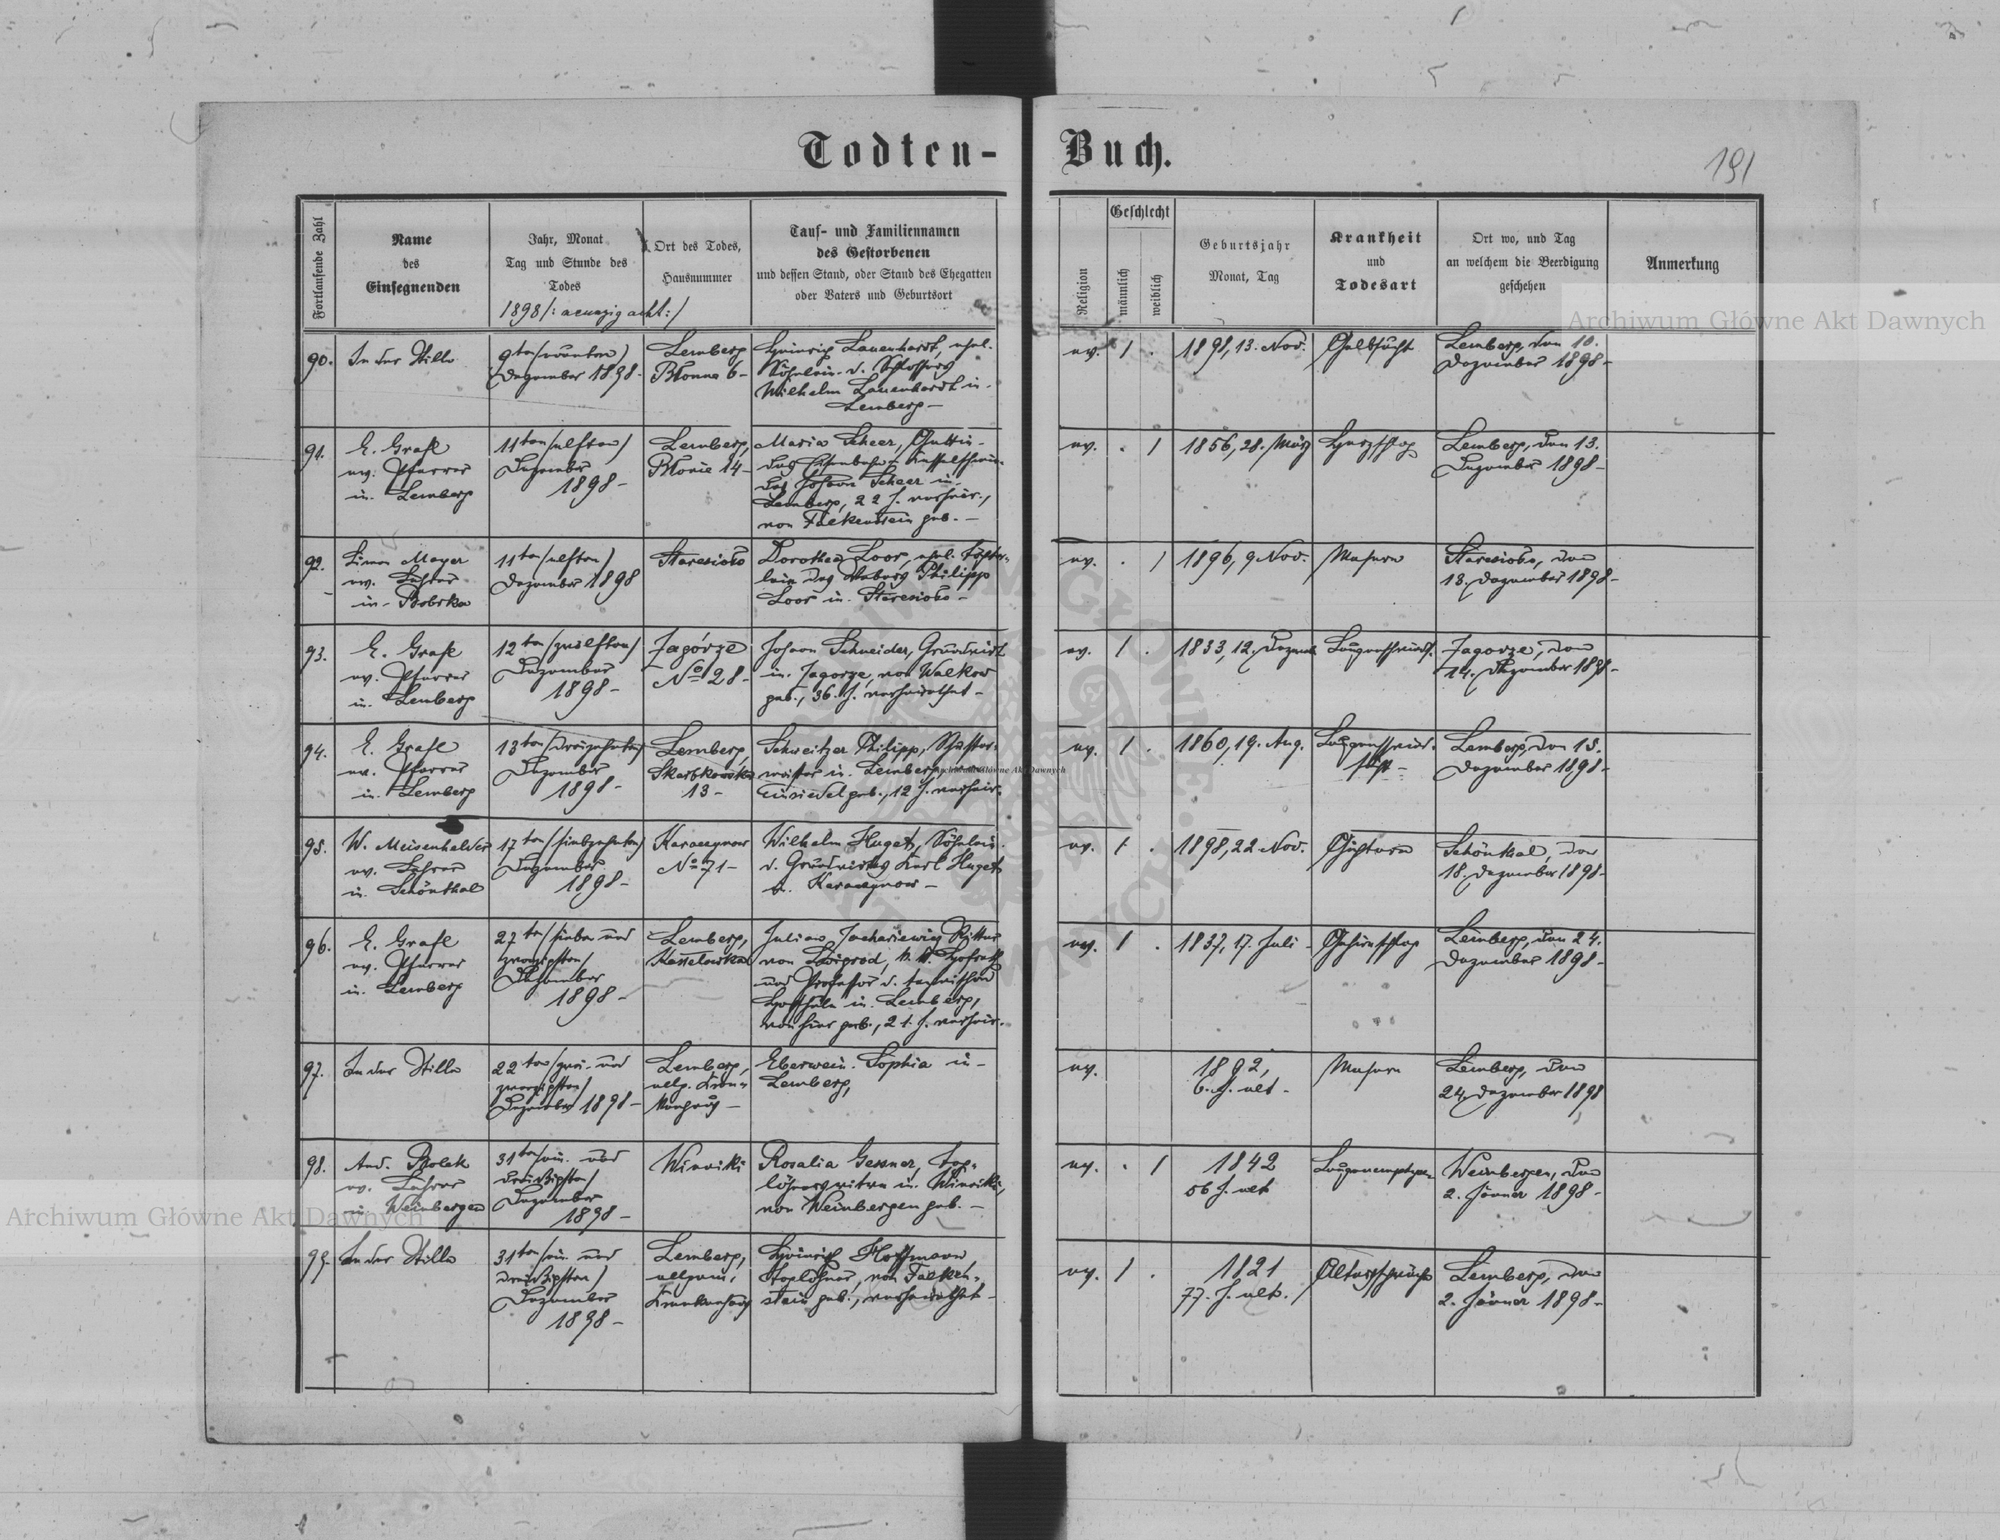 Todten-Buch.
191
Fortlaufende Zahl
Name
des
Einsegnenden
Jahr, Monat
Tag und Stunde des
Todes
1898 /: neunzig acht :/
Ort des Todes,
Hausnummer
Tauf- und Familiennamen
des Gestorbenen
und dessen Stand, oder Stand des Ehegatten
oder Vaters und Geburtsort
Religion
Geschlecht
männlich
weiblich
Geburtsjahr
Monat, Tag
Krankheit
und
Todesart
Ort wo, und Tag
an welchem die Beerdigung
geschehen
Anmerkung
90.
In der Stille
9ten /neunten/
Dezember 1898-
Lemberg
Blonna 6-
Heinrich Lauenhardt, ehel.
Söhnlein d. Schlossers
Wilhelm Lauenhardt in
Lemberg-
ev. 1 .
1898, 13. Nov.
Gelbsucht
Lemberg, den 10.
Dezember 1898-
91.
E. Grafl
ev. Pfarrer
in Lemberg
11ten /elften/
Dezember
1898-
Lemberg,
Blonie 14-
Maria Scheer, Gattin
des Eisenbahn
des Johann Scheer in
Lemberg, 22 J. verheir.,
von Falkenstein geb.-
ev. . 1
1856, 28. März
Herzschlag
Lemberg, den 13.
Dezember 1898-
92.
Simon Mayer
ev. Lehrer
in Bobrka
11ten /elften/
Dezember 1898
Staresioło
Dorothea Loos, ehel. Töchter-
lein des Webers Philipp
Loos in Staresioło-
ev. . 1
1896, 9 Nov.
Masern
Staresioło, den
13. Dezember 1898-
93.
E. Grafl
ev. Pfarrer
in Lemberg
12ten /zwölften/
Dezember
1898-
Zagórze
No 28-
Johann Schneider, Grundwirt
in Zagorze, von Walkow
geb., 36 J. verheirathet-
ev. 1 .
1833, 12. Dezemb.
Zagorze, den
14. Dezember 1898-
94.
E. Grafl
ev. Pfarrer
in Lemberg
13ten /dreizehnten/
Dezember
1898-
Lemberg,
Skarbkowska
13-
Schweitzer Philipp,
meister in Lemberg
Einsiedel geb., 12 J. verheir.
ev. 1 .
1860, 19. Aug.
Lungenschwind-
sucht-
Lemberg, den 15.
Dezember 1898-
95.
W. Meisenhelder
ev. Lehrer
in Schönthal
17ten /siebzehnten/
Dezember
1898-
Karaczynow
No 71-
Wilhelm Huget, Söhnlein
d. Grundwirths Karl Huget
in Karaczynow-
ev. 1 .
1898, 22 Nov.
Schönthal, den
18. Dezember 1898-
96.
E. Grafl
ev. Pfarrer
in Lemberg
27ten /sieben und
zwanzigsten/
Dezember
1898-
Lemberg,
Julian Zachariewicz Ritter
von Lwigrod, k. k. Hofrath
und Professor d. technischen
Hochschule in Lemberg,
von hier geb., 21. J. verheir.
ev. 1 .
1837, 17. Juli-
Gehirnschlag
Lemberg, den 24.
Dezember 1898-
97.
In der Stille
22ten /zwei und
zwanzigsten/
Dezember 1898-
Lemberg,
allg. Kran-
kenhaus-
Eberwein Sophia in
Lemberg,
ev.
1892,
6. J. alt-
Masern
Lemberg, den
24. Dezember 1898
98.
And. Bolek
ev. Lehrer
in Weinbergen
31ten /ein und
dreißigsten/
Dezember
1898-
Winniki
Rosalia Gessner, Tag-
löhnersgattin in Winniki,
von Weinbergen geb.-
ev. . 1
1842
56 J. alt
Weinbergen, den
2. Jänner 1898-
99.
In der Stille
31ten /ein und
dreißigsten/
Dezember
1898-
Lemberg,
allgem.
Krankenhaus
Heinrich Hoffmann
Taglöhner, von Falken-
stein geb., verheirathet-
ev. 1 .
1821
77. J. alt.
Altersschwäche
Lemberg, den
2. Jänner 1898-
Archiwum Główne Akt Dawnych
Archiwum Główne Akt Dawnych
Archiwum Główne Akt Dawnych